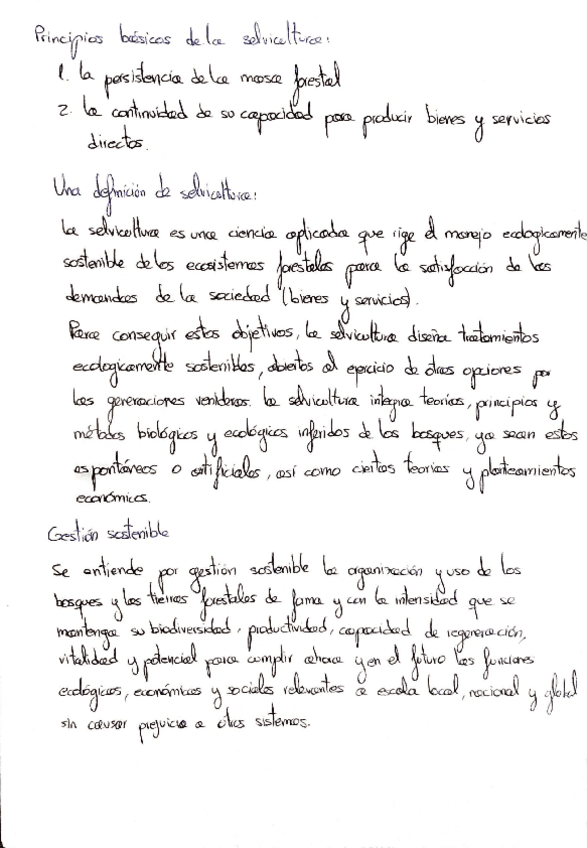 Principios básicos de la selvicultura:
1. la persistencia de la masa forestal
2. la continuidad de su capacidad para producir bienes y servicios
directos.
Una definición de selvicultura:
La selvicultura es una ciencia aplicada que rige el manejo ecologicamente
sostenible de los ecosistemas forestales para la satisfacción de las
demandas de la sociedad (bienes y servicios).
Para conseguir estos objetivos, la selvicultura diseña tratamientos
ecologicamente sostenibles, abiertos al ejercicio de otras opciones por
las generaciones venideras. la selvicultura integra teorías, principios y
métodos biológicos y ecológicos inferidos de los bosques, ya sean estos
espontáneos o artificiales, así como ciertas teorías y planteamientos
económicos.
Gestión sostenible
Se entiende por gestión sostenible la organización y uso de los
bosques y las tierras forestales de forma y con la intensidad que se
mantenga su biodiversidad, productividad, capacidad de regeneración,
vitalidad y potencial para cumplir ahora y en el futuro las funciones
ecológicas, económicas y sociales relevantes a escala local, nacional y global
sin causar prejuicio a otros sistemas.